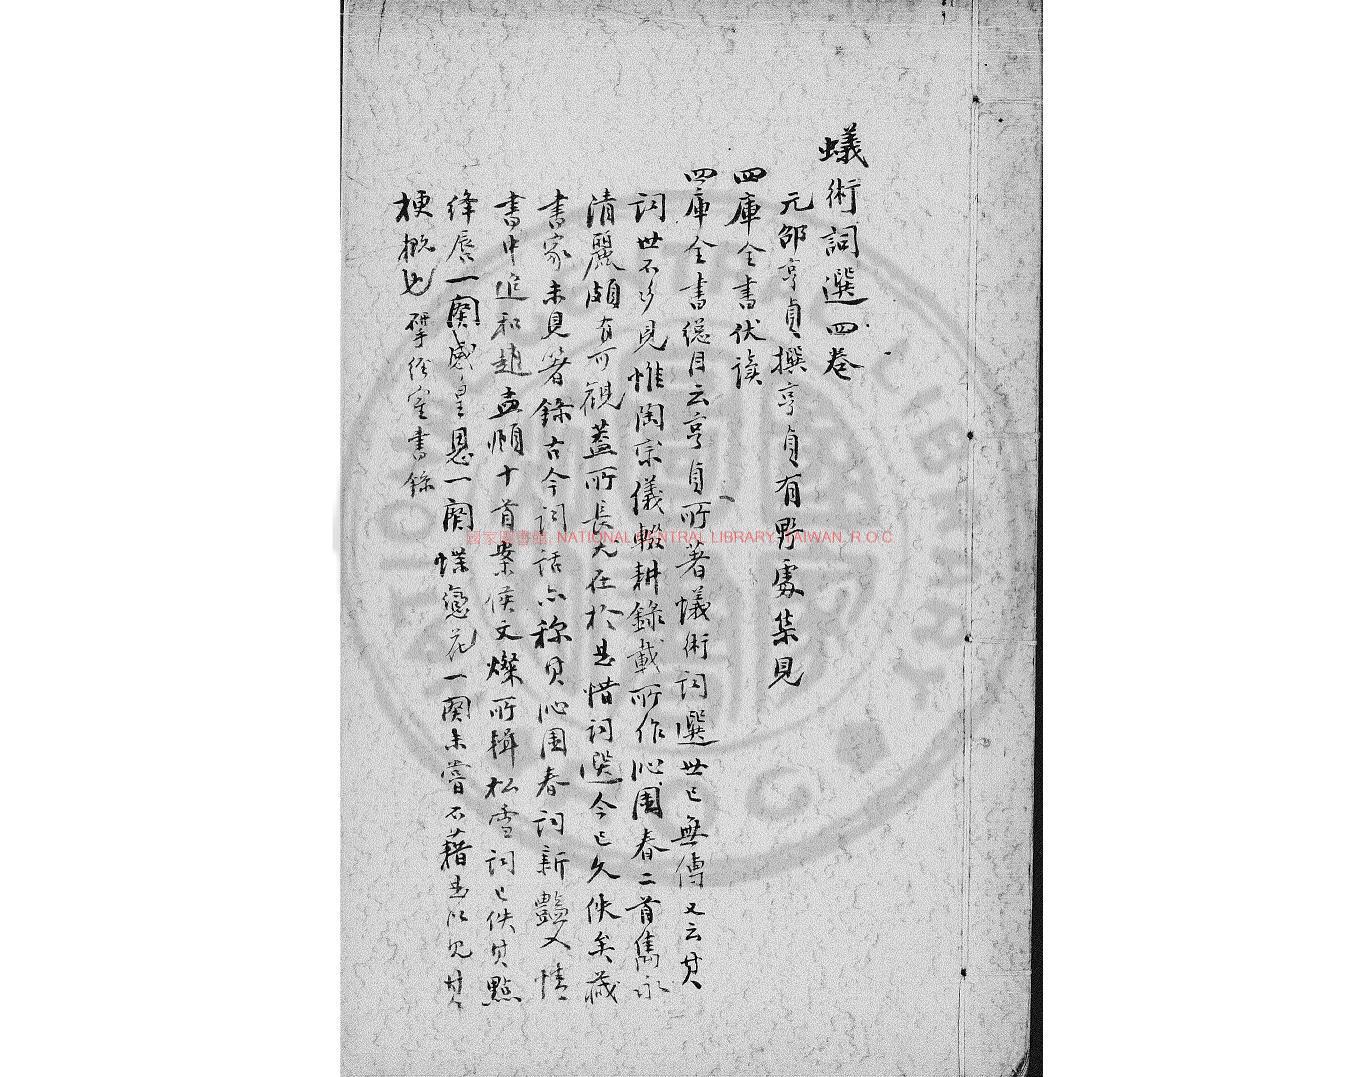 蟻術詞選四卷
元邵亨貞撰亨貞有野處集見
四庫全書伏讀
四庫全書總目云亨貞所著蟻術詞選世已無傳又云其
詞世不多見惟陶宗儀輟耕錄載所作沁園春二首雋永
清麗頗有可觀蓋所長尤在於是惜詞選今已久佚矣藏
書家未見著錄古今詞話亦稱貞沁園春詞新艷入情
書中追和趙孟頫十首案侯文燦所輯松雪詞已佚其點
絳唇一闋感皇恩一闋蝶戀花一闋未嘗不藉是以見其
梗概也 揅經室書錄
國家圖書館, NATIONAL CENTRAL LIBRARY, TAIWAN, R.O.C